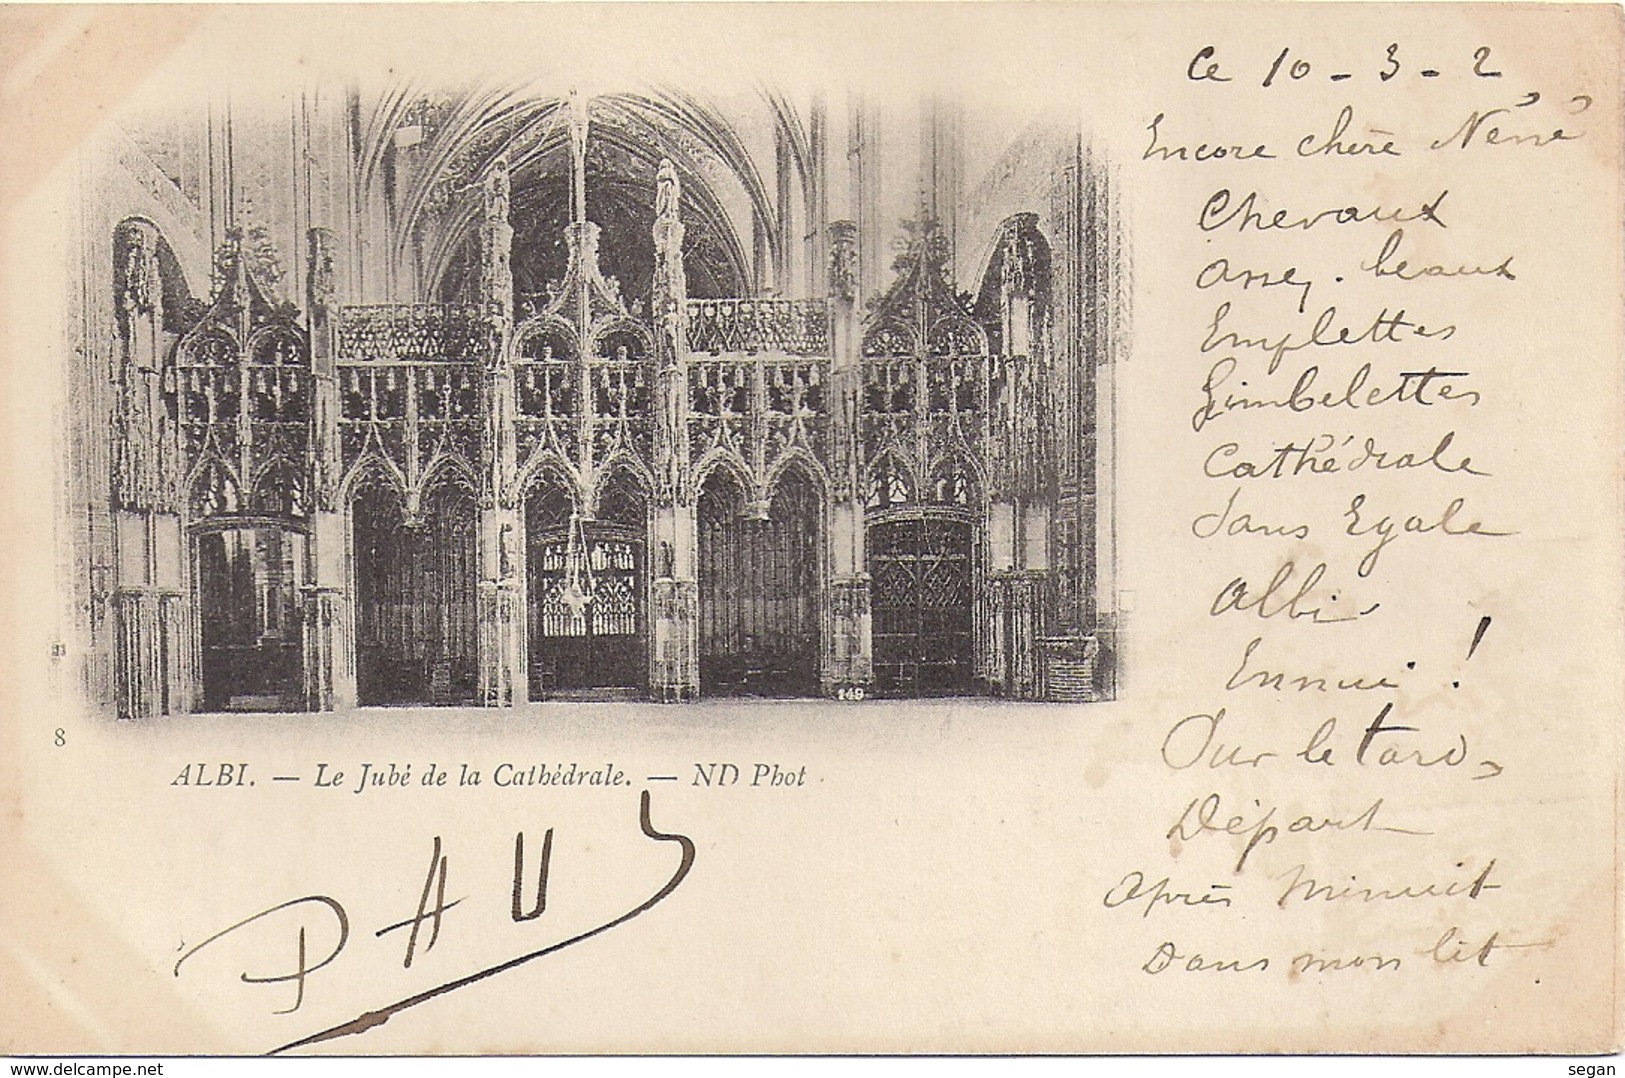 Ce 10 - 3 - 2
Encore chère Néné
Chevaux
assez. beaux
Emplettes
Gimbelettes
Cathédrale
Sans Egale
Albi
Ennui !
Sur le tard,
Départ
Après Minuit
Dans mon lit
149
8
ALBI. — Le Jubé de la Cathédrale. — ND Phot
PAUL
www.delcampe.net
segan